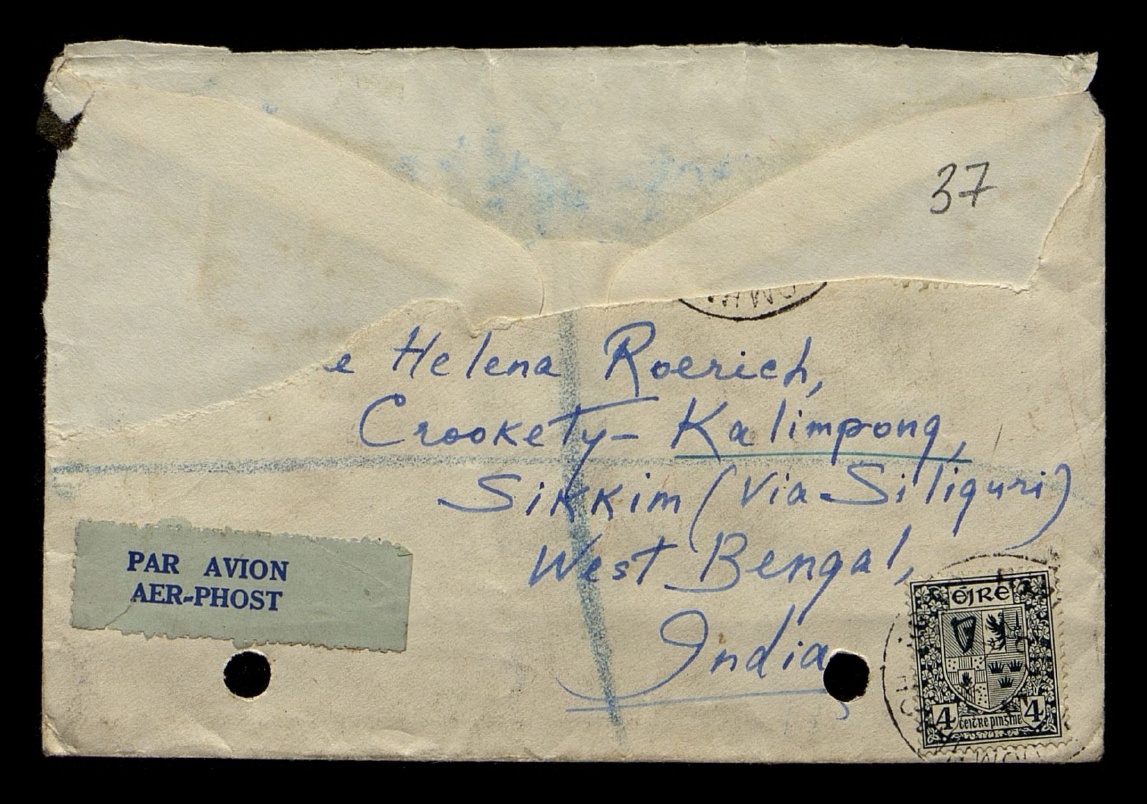 37
e Helena Roerich,
Crookety- Kalimpong,
Sikkim (Via Siliguri)
West Bengal,
India
PAR AVION
AER-PHOST
ÉIRE
4 ceitre pinsine 4